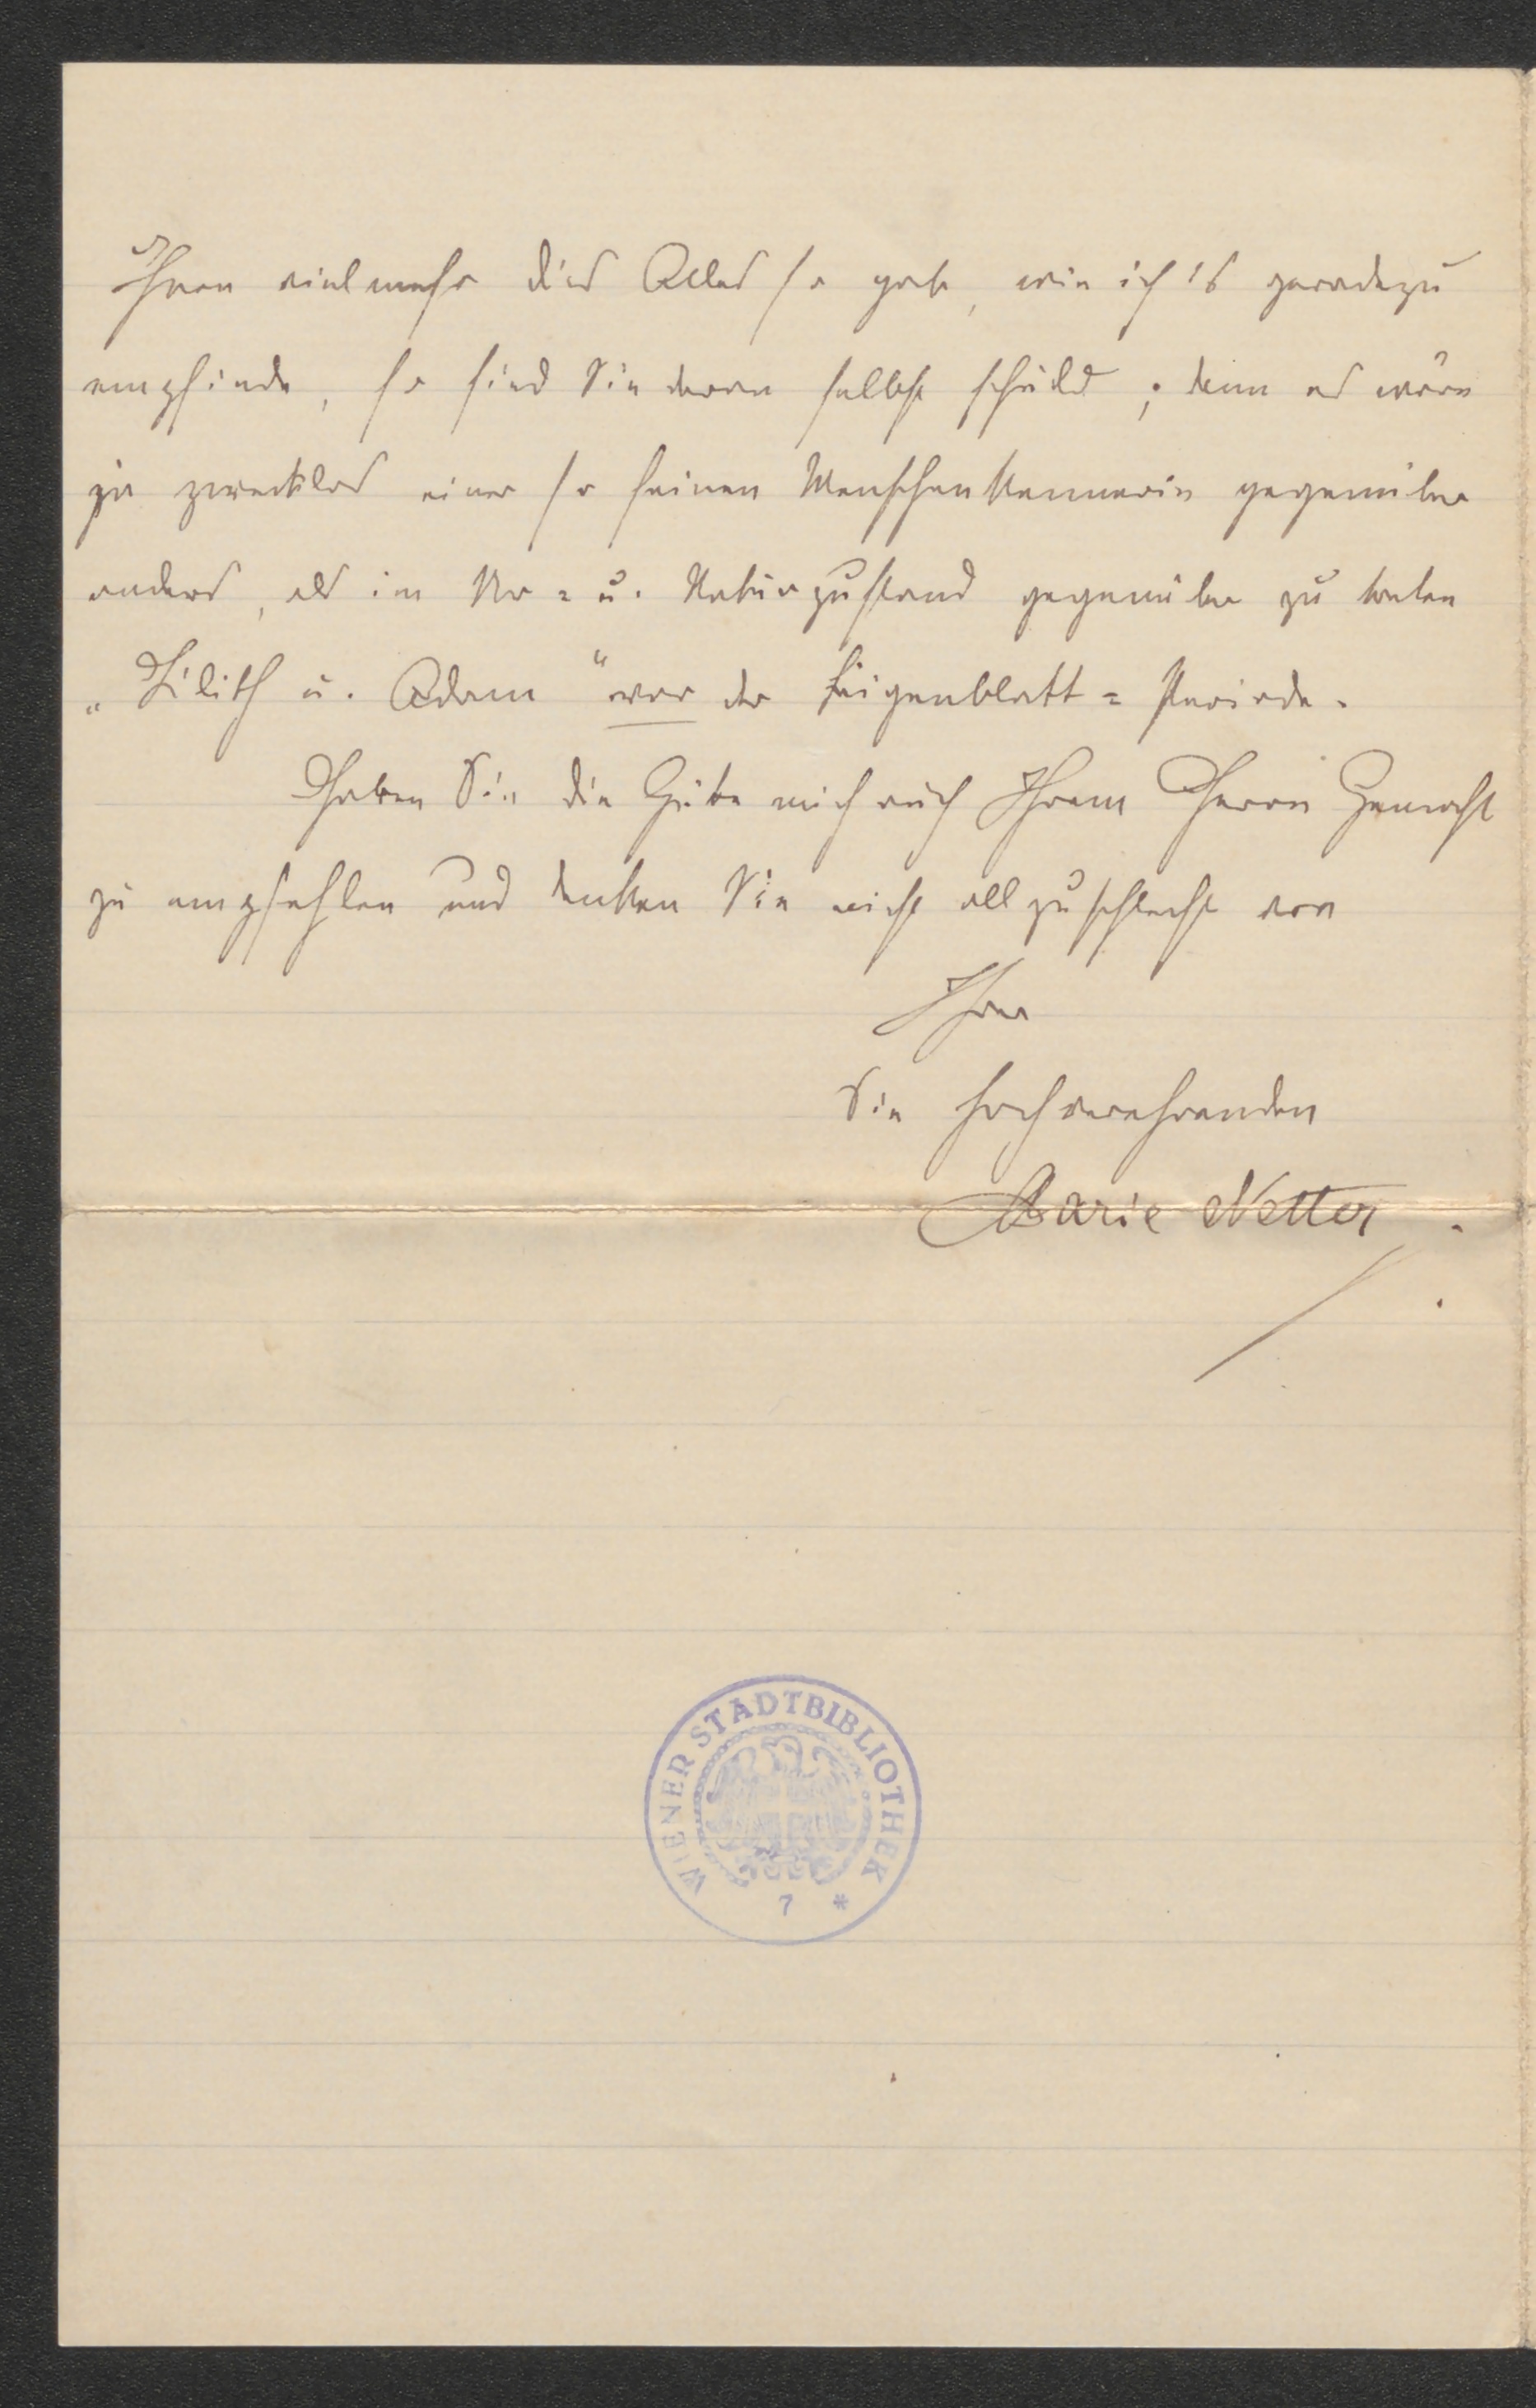 Ihnen vielmehr dies Alles so gebe, wie ich's geradezu
empfinde, so sind Sie daran selbst schuld; denn es wäre
ja zwecklos einer so feinen Menschenkennerin gegenüber
anders, als im Ur= u. Naturzustand gegenüber zu treten
„Lilith u. Adam" vor der Feigenblatt= Periode.
Haben Sie die Güte mich auch Ihrem Herrn Gemahl
zu empfehlen und denken Sie nicht allzuschlecht von
Ihrer
Sie hochverehrenden
Marie Netter.
WIENER STADTBIBLIOTHEK
7 *